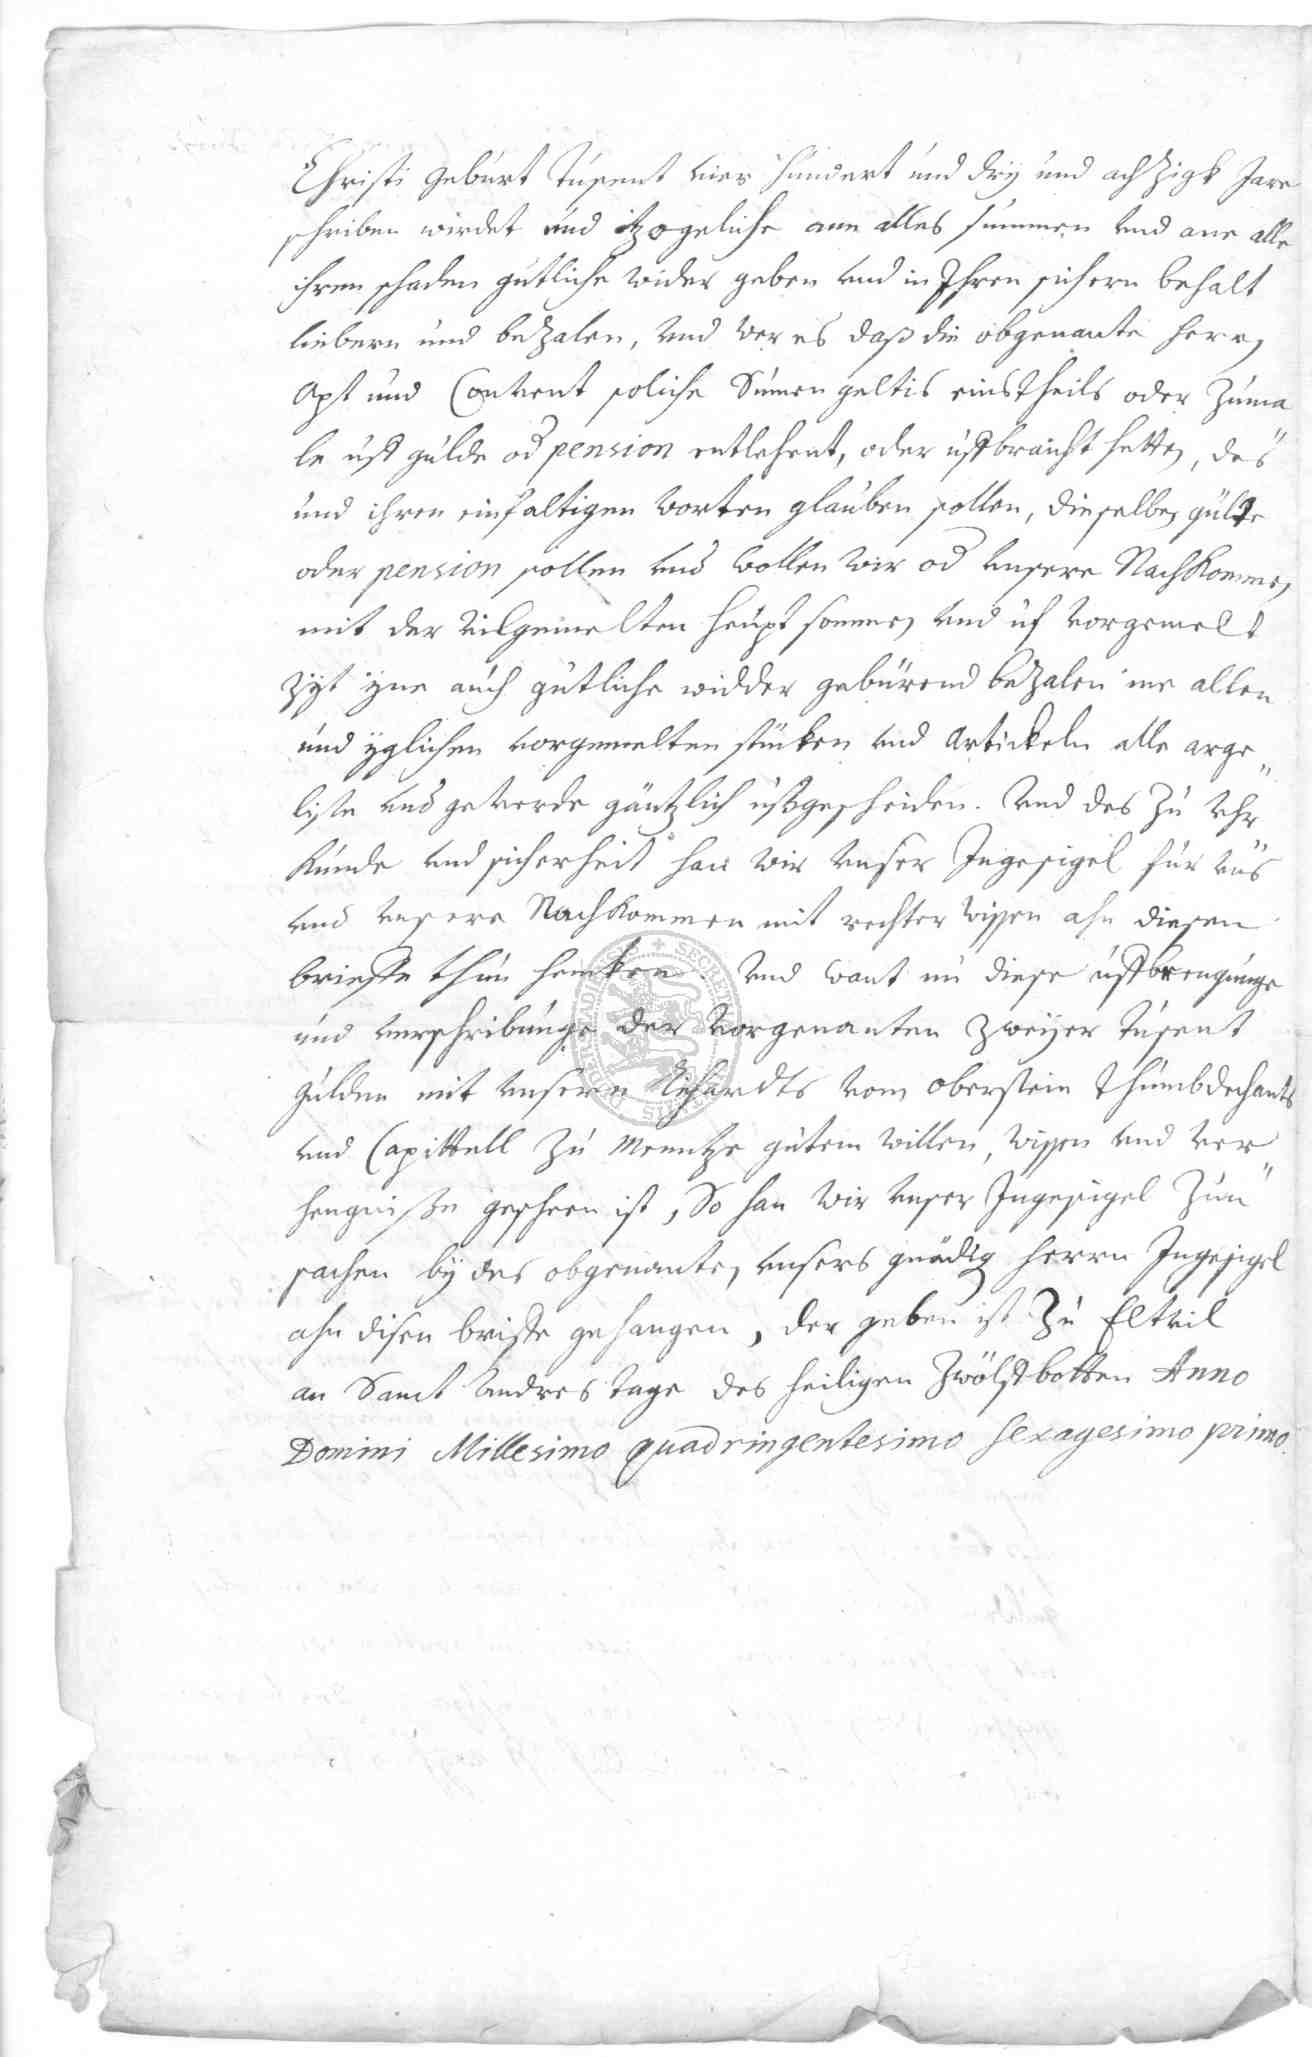 Christi geburt Tusent vier hundert und dry und achzigk Jare
schriben wirdet und itzogeliche ane alles summen und ane alle
ihren schaden gutliche wider geben und in Ihren sichern behalt
liebern und bezalen, und wer es daß die obgenante Herrn
Apt und Convent soliche Summen geltis einstheils oder Zuma
le uff gulde od pension entlehent, oder uffbraicht hetten, des
und ihren einfaltigen worten glauben sollen, dieselben gülte
oder pension sollen und wollen wir od unsere Nachkommen
mit der vilgemelten heuptsommen und uf vorgemelt
zyt yne auch gutliche widder gebürend bezalen ine allen
und yglichen vorgemelten stücken und Artickeln alle arge
liste und geverde gäntzlich ußgescheiden. Und des zu Uhr
kunde und sicherheit han wir unser Ingesigel für uns
und unsere Nachkommen mit rechter wissen ahn diesen
brieffe thun hencken. Und want nu diese uffbrengunge
und verschribunge der vorgenanten zweyer tusent
gulden mit unsern Richardts vom Oberstein Thumbdechants
und Capittell zu Mentze gutem willen, wissen und ver
hengniße gescheen ist, So han wir unser Ingesigel zun
sachen by des obgenanten unsers gnädig Herrn Ingesigel
ahn disen brieffe gehangen, der geben ist zu Eltvil
an Sanct Andres tage des heiligen Zwölfbotten Anno
Domini Millesimo quadringentesimo sexagesimo primo.